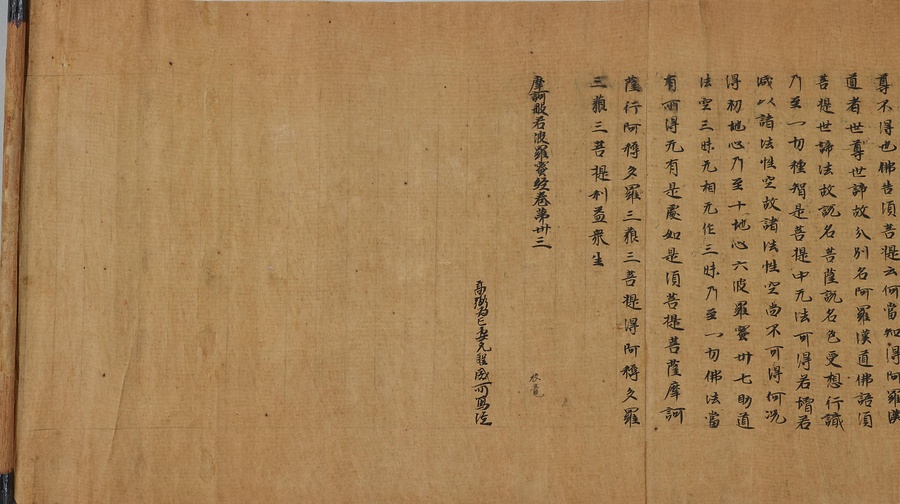 尊不得也佛告須菩提云何當知得阿羅漢
道者世尊世諦故分別名阿羅漢道佛語須
菩提世諦法故說名菩薩說名色受想行識
乃至一切種智是菩提中无法可得若增若
减以諸法性空故諸法性空尚不可得何况
得初地心乃至十地心六波羅蜜卅七助道
法空三昧无相无作三昧乃至一切佛法當
有所得无有是處如是須菩提菩薩摩訶
薩行阿耨多羅三藐三菩提得阿耨多羅
三藐三菩提利益衆生
摩訶般若波羅蜜經卷第卅三
高弼為亡妻元聖威所寫經